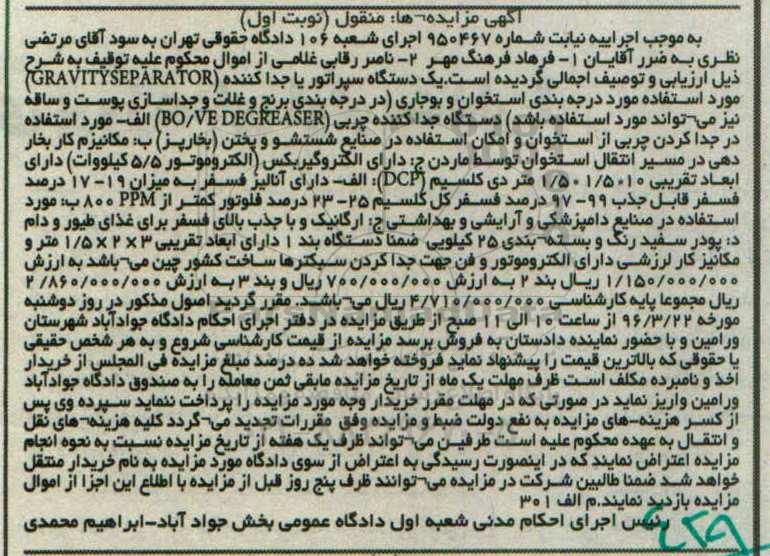 آگهی مزایده¬ها: منقول (نوبت اول)
به موجب اجراییه نیابت شماره ۹۵۰۴۶۷ اجرای شعبه ۱۰۶ دادگاه حقوقی تهران به سود آقای مرتضی
نظری به ضرر آقایان ۱- فرهاد فرهنگ مهر ۲- ناصر رقابی غلامی از اموال محکوم علیه توقیف به شرح
ذیل ارزیابی و توصیف اجمالی گردیده است.یک دستگاه سپراتور یا جدا کننده (GRAVITYSEPARATOR)
مورد استفاده مورد درجه بندی استخوان و بوجاری (در درجه بندی برنج و غلات و جداسازی پوست و ساقه
نیز می¬تواند مورد استفاده باشد) دستگاه جدا کننده چربی (BO/VE DEGREASER) الف- مورد استفاده
در جدا کردن چربی از استخوان و امکان استفاده در صنایع شستشو و پختن (بخارپز) ب: مکانیزم کار بخار
دهی در مسیر انتقال استخوان توسط ماردن ج: دارای الکتروگیربکس (الکتروموتور ۵/۵ کیلووات) دارای
ابعاد تقریبی ۱/۵۰۱۰ ۱/۵۰ متر دی کلسیم (DCP): الف- دارای آنالیز فسفر به میزان ۱۹- ۱۷ درصد
فسفر قابل جذب ۹۹- ۹۷ درصد فسفر کل کلسیم ۲۵- ۲۳ درصد فلوئور کمتر از ۸۰۰ PPM ب: مورد
استفاده در صنایع دامپزشکی و آرایشی و بهداشتی ج: ارگانیک و با جذب بالای فسفر برای غذای طیور و دام
د: پودر سفید رنگ و بسته¬بندی ۲۵ کیلویی ضمنا دستگاه بند ۱ دارای ابعاد تقریبی ۳ × ۲ × ۱/۵ متر و
مکانیز کار لرزشی دارای الکتروموتور و فن جهت جدا کردن سپکترها ساخت کشور چین می¬باشد به ارزش
۱/۱۵۰/۰۰۰/۰۰۰ ریال بند ۲ به ارزش ۷۰۰/۰۰۰/۰۰۰ ریال و بند ۳ به ارزش ۲/۸۶۰/۰۰۰/۰۰۰
ریال مجموعا پایه کارشناسی ۴/۷۱۰/۰۰۰/۰۰۰ ریال می¬باشد. مقرر گردید اصول مذکور در روز دوشنبه
مورخه ۹۶/۳/۲۲ از ساعت ۱۰ الی ۱۱ صبح از طریق مزایده در دفتر اجرای احکام دادگاه جوادآباد شهرستان
ورامین و با حضور نماینده دادستان به فروش برسد مزایده از قیمت کارشناسی شروع و به هر شخص حقیقی
یا حقوقی که بالاترین قیمت را پیشنهاد نماید فروخته خواهد شد ده درصد مبلغ مزایده فی المجلس از خریدار
اخذ و نامبرده مکلف است ظرف مهلت یک ماه از تاریخ مزایده مابقی ثمن معامله را به صندوق دادگاه جوادآباد
ورامین واریز نماید در صورتی که در مهلت مقرر خریدار وجه مورد مزایده را پرداخت ننماید سپرده وی پس
از کسر هزینه-های مزایده به نفع دولت ضبط و مزایده وفق مقررات تجدید می¬گردد کلیه هزینه¬های نقل
و انتقال به عهده محکوم علیه است طرفین می¬تواند ظرف یک هفته از تاریخ مزایده نسبت به نحوه انجام
مزایده اعتراض نمایند که در اینصورت رسیدگی به اعتراض از سوی دادگاه مورد مزایده به نام خریدار منتقل
خواهد شد ضمنا طالبین شرکت در مزایده می¬توانند ظرف پنج روز قبل از مزایده با اطلاع این اجزا از اموال
مزایده بازدید نمایند.م الف ۳۰۱
رئیس اجرای احکام مدنی شعبه اول دادگاه عمومی بخش جواد آباد-ابراهیم محمدی